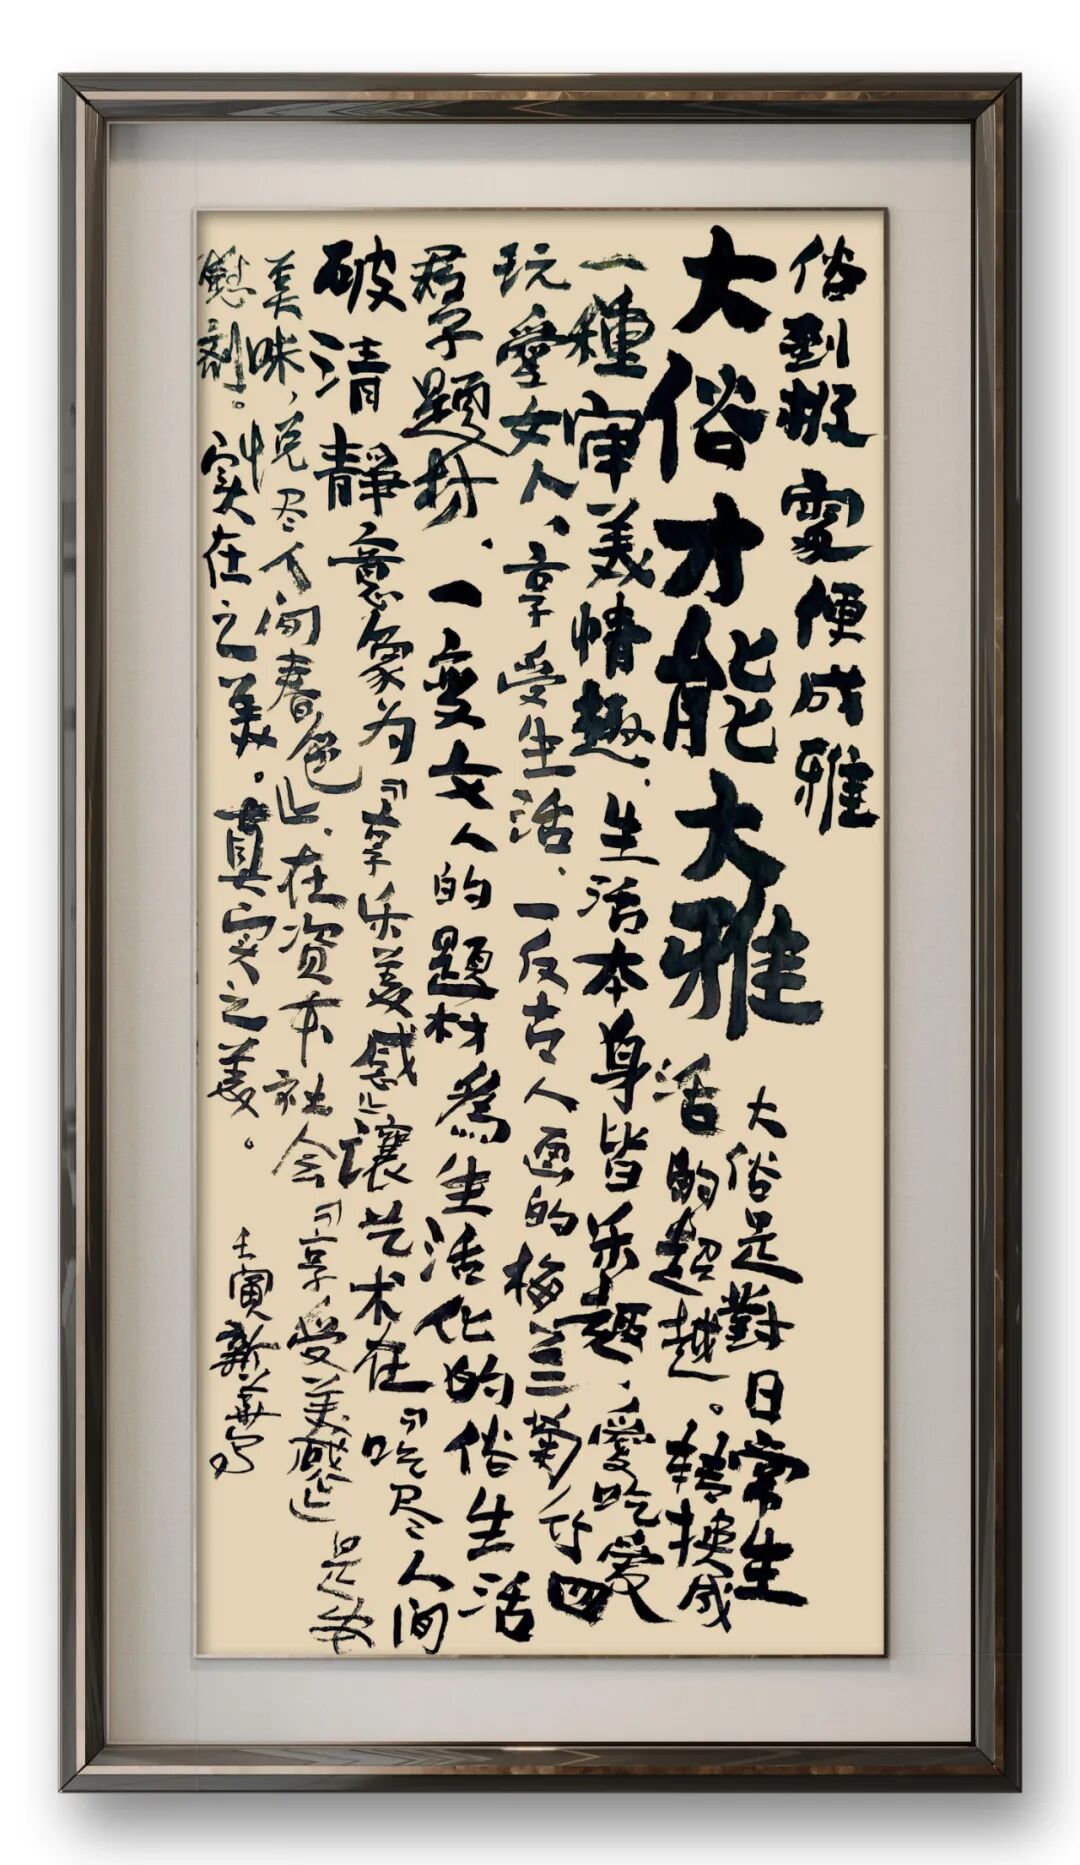 俗到极处便成雅
大俗才能大雅
大俗是對日常生
活的超越。转换成
一種审美情趣.生活本身皆乐趣.愛吃爱
玩愛女人、享受生活、一反古人画的梅兰菊竹四
君子题材.一变女人的题材為生活化的俗生活
破清靜意象为『享乐美感』让艺术在『吃尽人间
美味,悦尽人间春色』.在资本社会『享受美感』是安
慰剂。实在之美。真实之美。
壬寅新華写